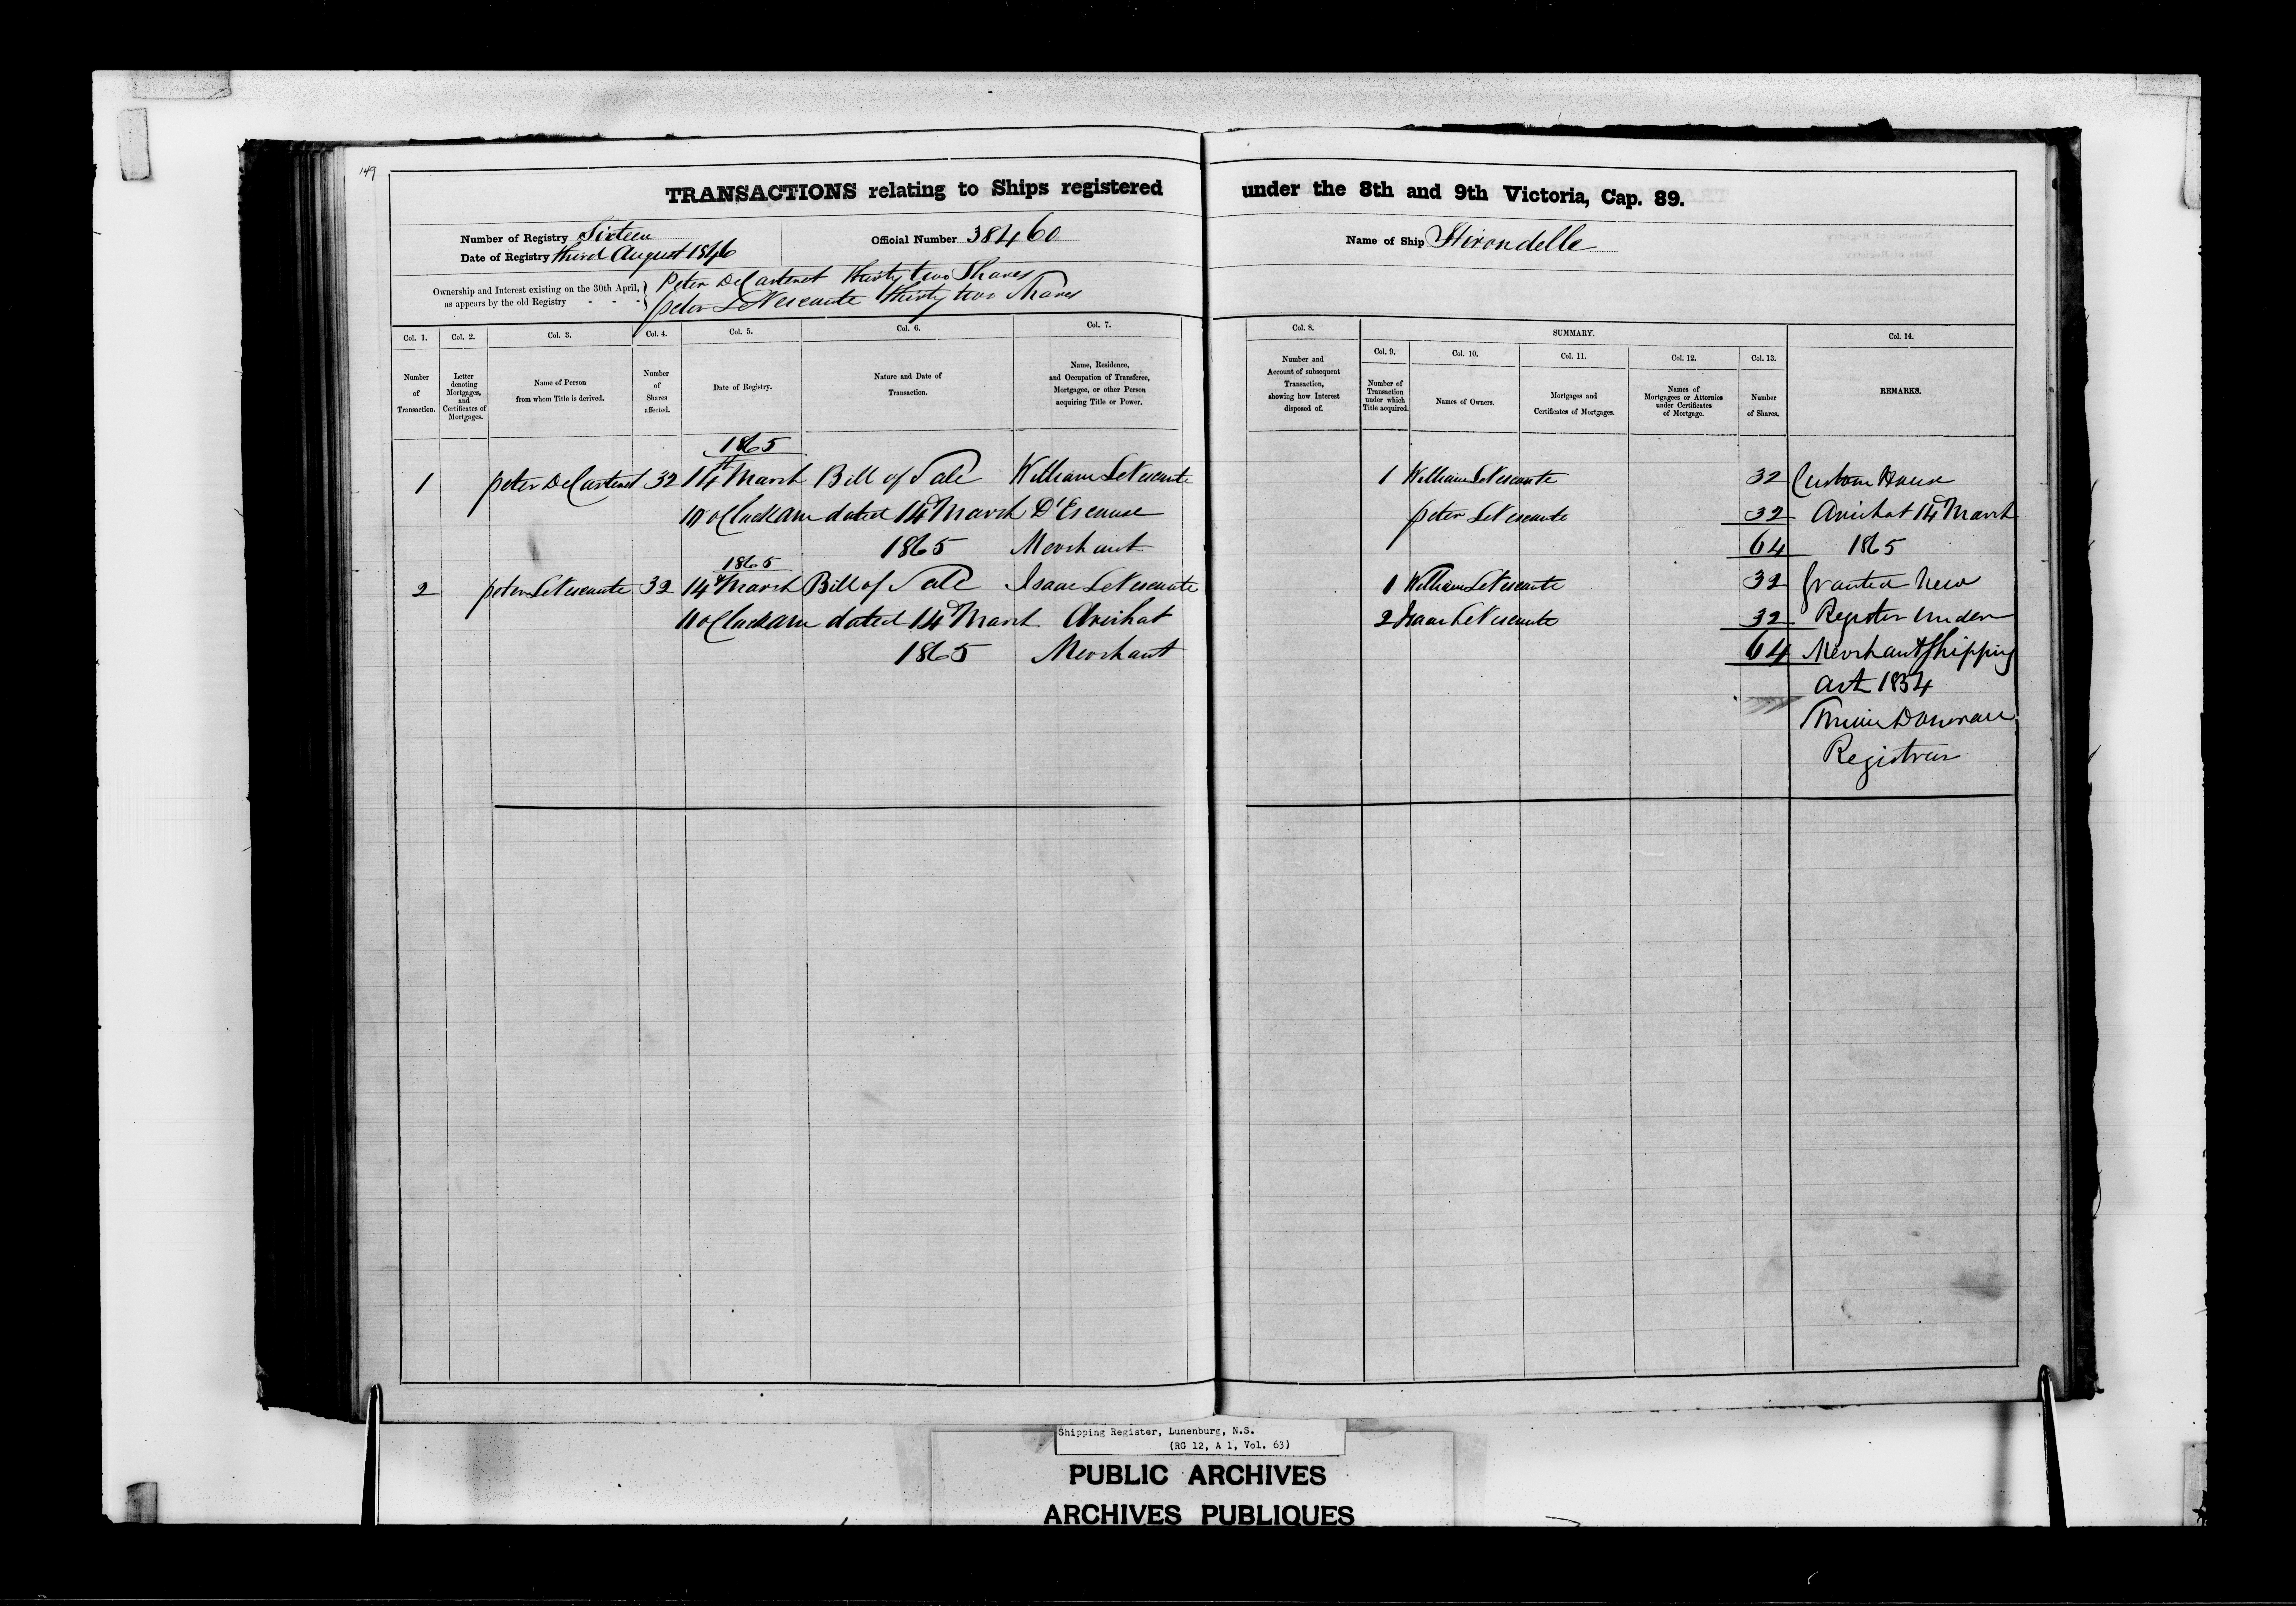 149
TRANSACTIONS relating to Ships registered under the 8th and 9th Victoria, Cap. 89.
Number of Registry Sixteen
Date of Registry third August 1846
Official Number 38460
Name of Ship Hirondelle
Ownership and Interest existing on the 30th April, as appears by the old Registry - - -
Peter DeCarteret thirty two Shares
peter LeVescaute thirty two Shares
Col. 1. Col. 2. Col. 3. Col. 4. Col. 5. Col. 6. Col. 7. Col. 8. SUMMARY. Col. 14.
Col. 9. Col. 10. Col. 11. Col. 12. Col. 13.
Number of Transaction.
Letter denoting Mortgages, and Certificates of Mortgages.
Name of Person from whom Title is derived.
Number of Shares affected.
Date of Registry.
Nature and Date of Transaction.
Name, Residence, and Occupation of Transferee, Mortgagee, or other Person acquiring Title or Power.
Number and Account of subsequent Transaction, showing how Interest disposed of.
Number of Transaction under which Title acquired.
Names of Owners.
Mortgages and Certificates of Mortgages.
Names of Mortgagees or Attornies under Certificates of Mortgage.
Number of Shares.
REMARKS.
1865
1 peter DeCarteret 32 14th March Bill of Sale William LeVescaute 1 William LeVescaute 32 Custom House
11 oClock am dated 14th March D'Escouse peter LeVescaute 32 Arichat 14th March
1865 Merchant 64 1865
1865
2 peter LeVescaute 32 14th March Bill of Sale Isaac LeVescaute 1 William LeVescaute 32 Granted New
11 oClock am dated 14th March Arichat 2 Isaac LeVescaute 32 Register Under
1865 Merchant 64 Merchant Shipping
Act 1854
Donovan
Registrar
Shipping Register, Lunenburg, N.S.
(RG 12, A 1, Vol. 63)
PUBLIC ARCHIVES
ARCHIVES PUBLIQUES